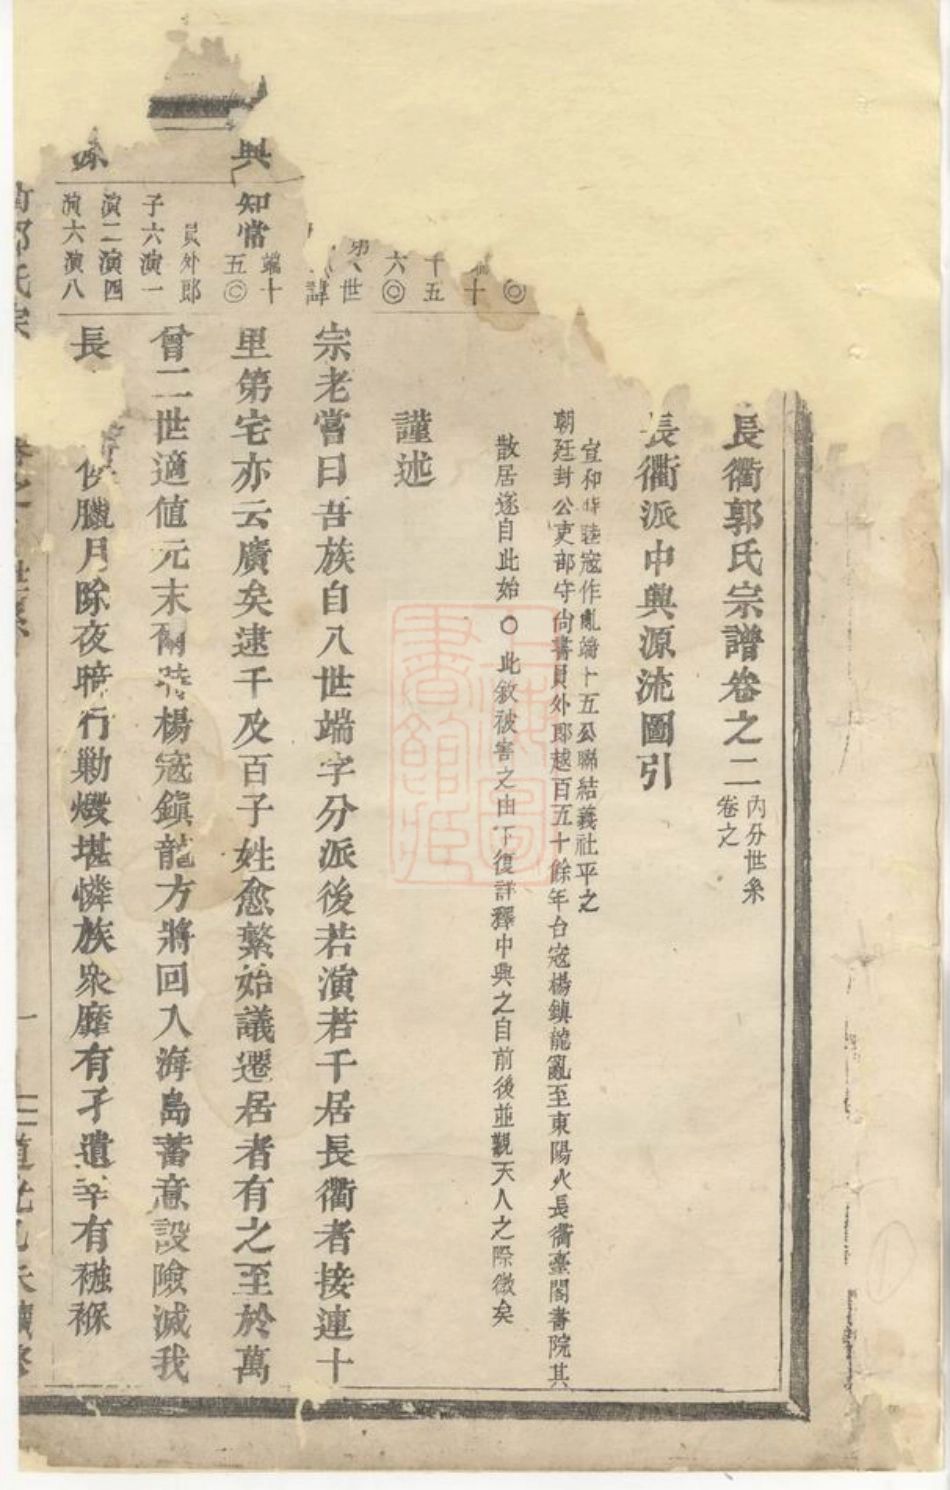 長衢郭氏宗譜卷之二
內分世系
卷之
長衢派中興源流圖引
宣和時睦寇作亂端十五公聯結義社平之
朝廷封公吏部守尚書員外郎越百五十餘年台寇楊鎮龍亂至東陽火長衢臺閣書院其
散居遂自此始〇此敘被害之由下復詳釋中興之自前後並觀天人之際微矣
謹述
宗老嘗曰吾族自八世端字分派後若演若千居長衢者接連十
里第宅亦云廣矣逮千及百子姓愈繁始議遷居者有之至於萬
曾二世適值元末 楊寇鎮龍方將回入海島蓄意設險滅我
長
臘月除夜暗行勦燬堪憐族衆靡有孑遺幸有襁褓
◎
十
千五
六◎
世
諱
興
知常
端十
五◎
員外郎
子六演一
演二演四
演六演八